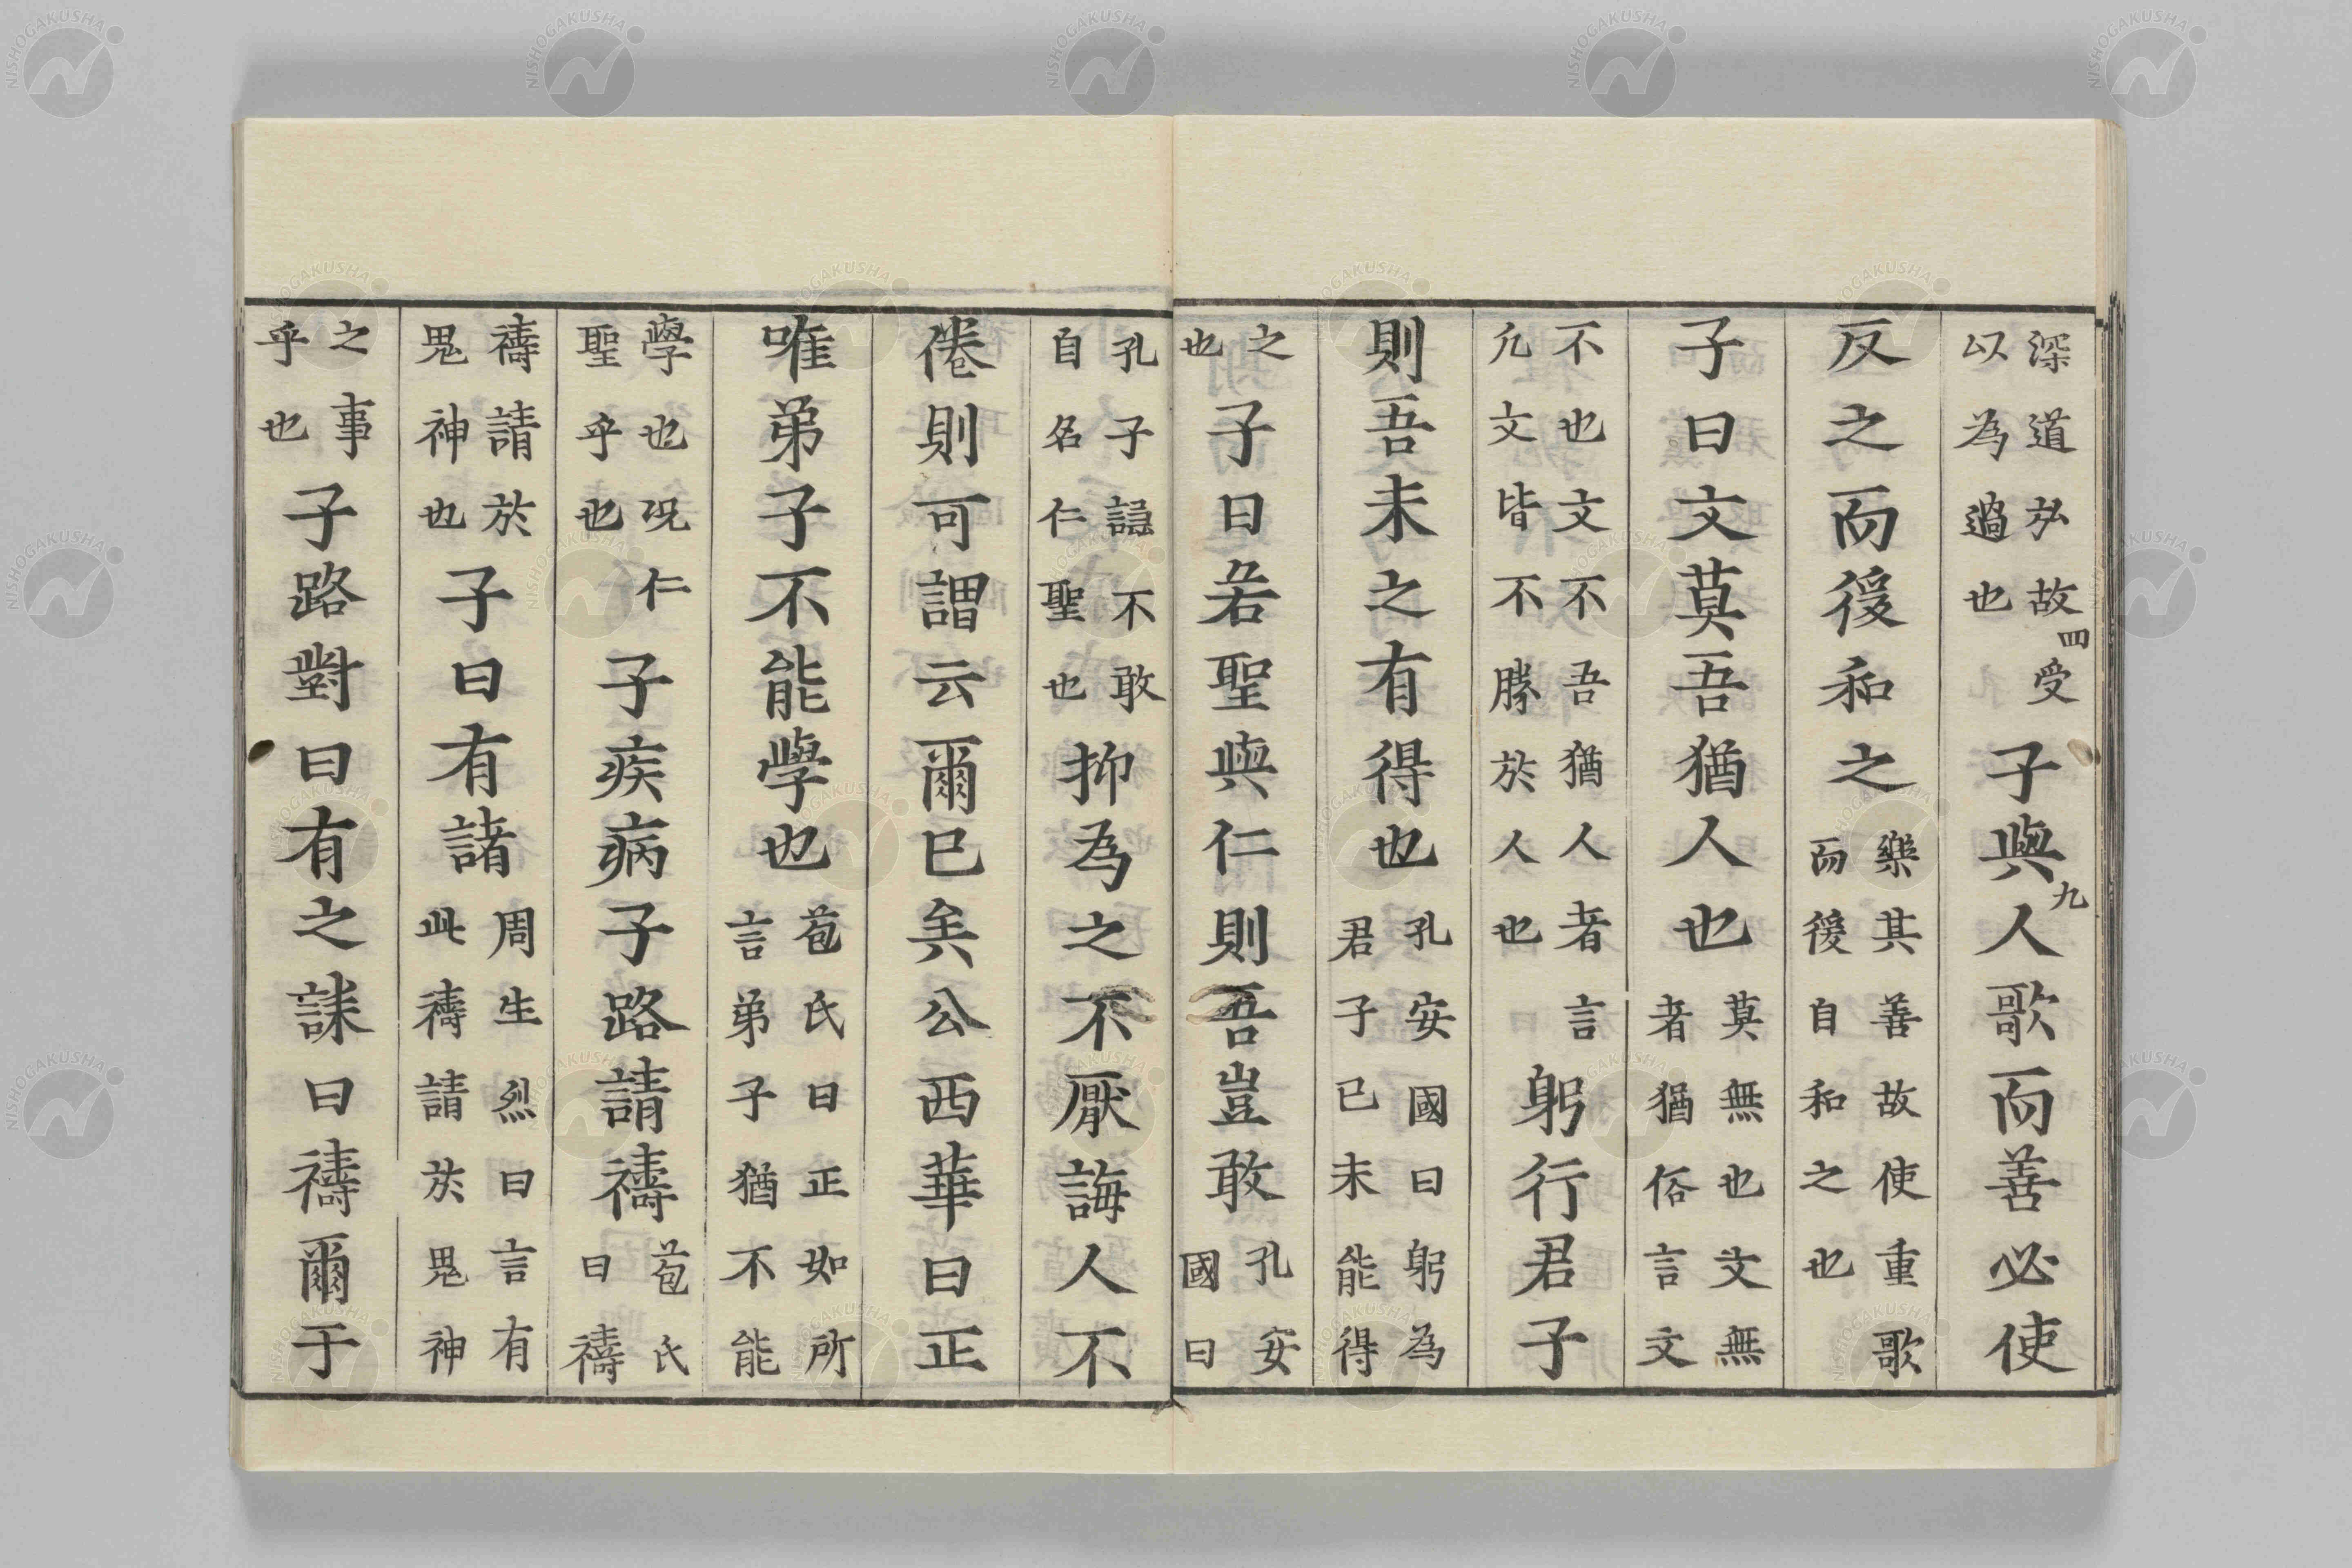 深道弘故受
以為過也
四
子與人歌而善必使
九
反之而後和之
樂其善故使重歌
而後自和之也
子曰文莫吾猶人也
莫無也文無
者猶俗言文
不也文不吾猶人者言
凡文皆不勝於人也
躬行君子
則吾未之有得也
孔安國曰躬為
君子已未能得
之
也
子曰若聖與仁則吾豈敢
孔安
國曰
孔子謙不敢
自名仁聖也
抑為之不厭誨人不
倦則可謂云爾已矣公西華曰正
唯弟子不能學也
苞氏曰正如所
言弟子猶不能
學也况仁
聖乎也
子疾病子路請禱
苞氏
曰禱
禱請於
鬼神也
子曰有諸
周生烈曰言有
此禱請於鬼神
之事
乎也
子路對曰有之誄曰禱爾于
NISHOGAKUSHA